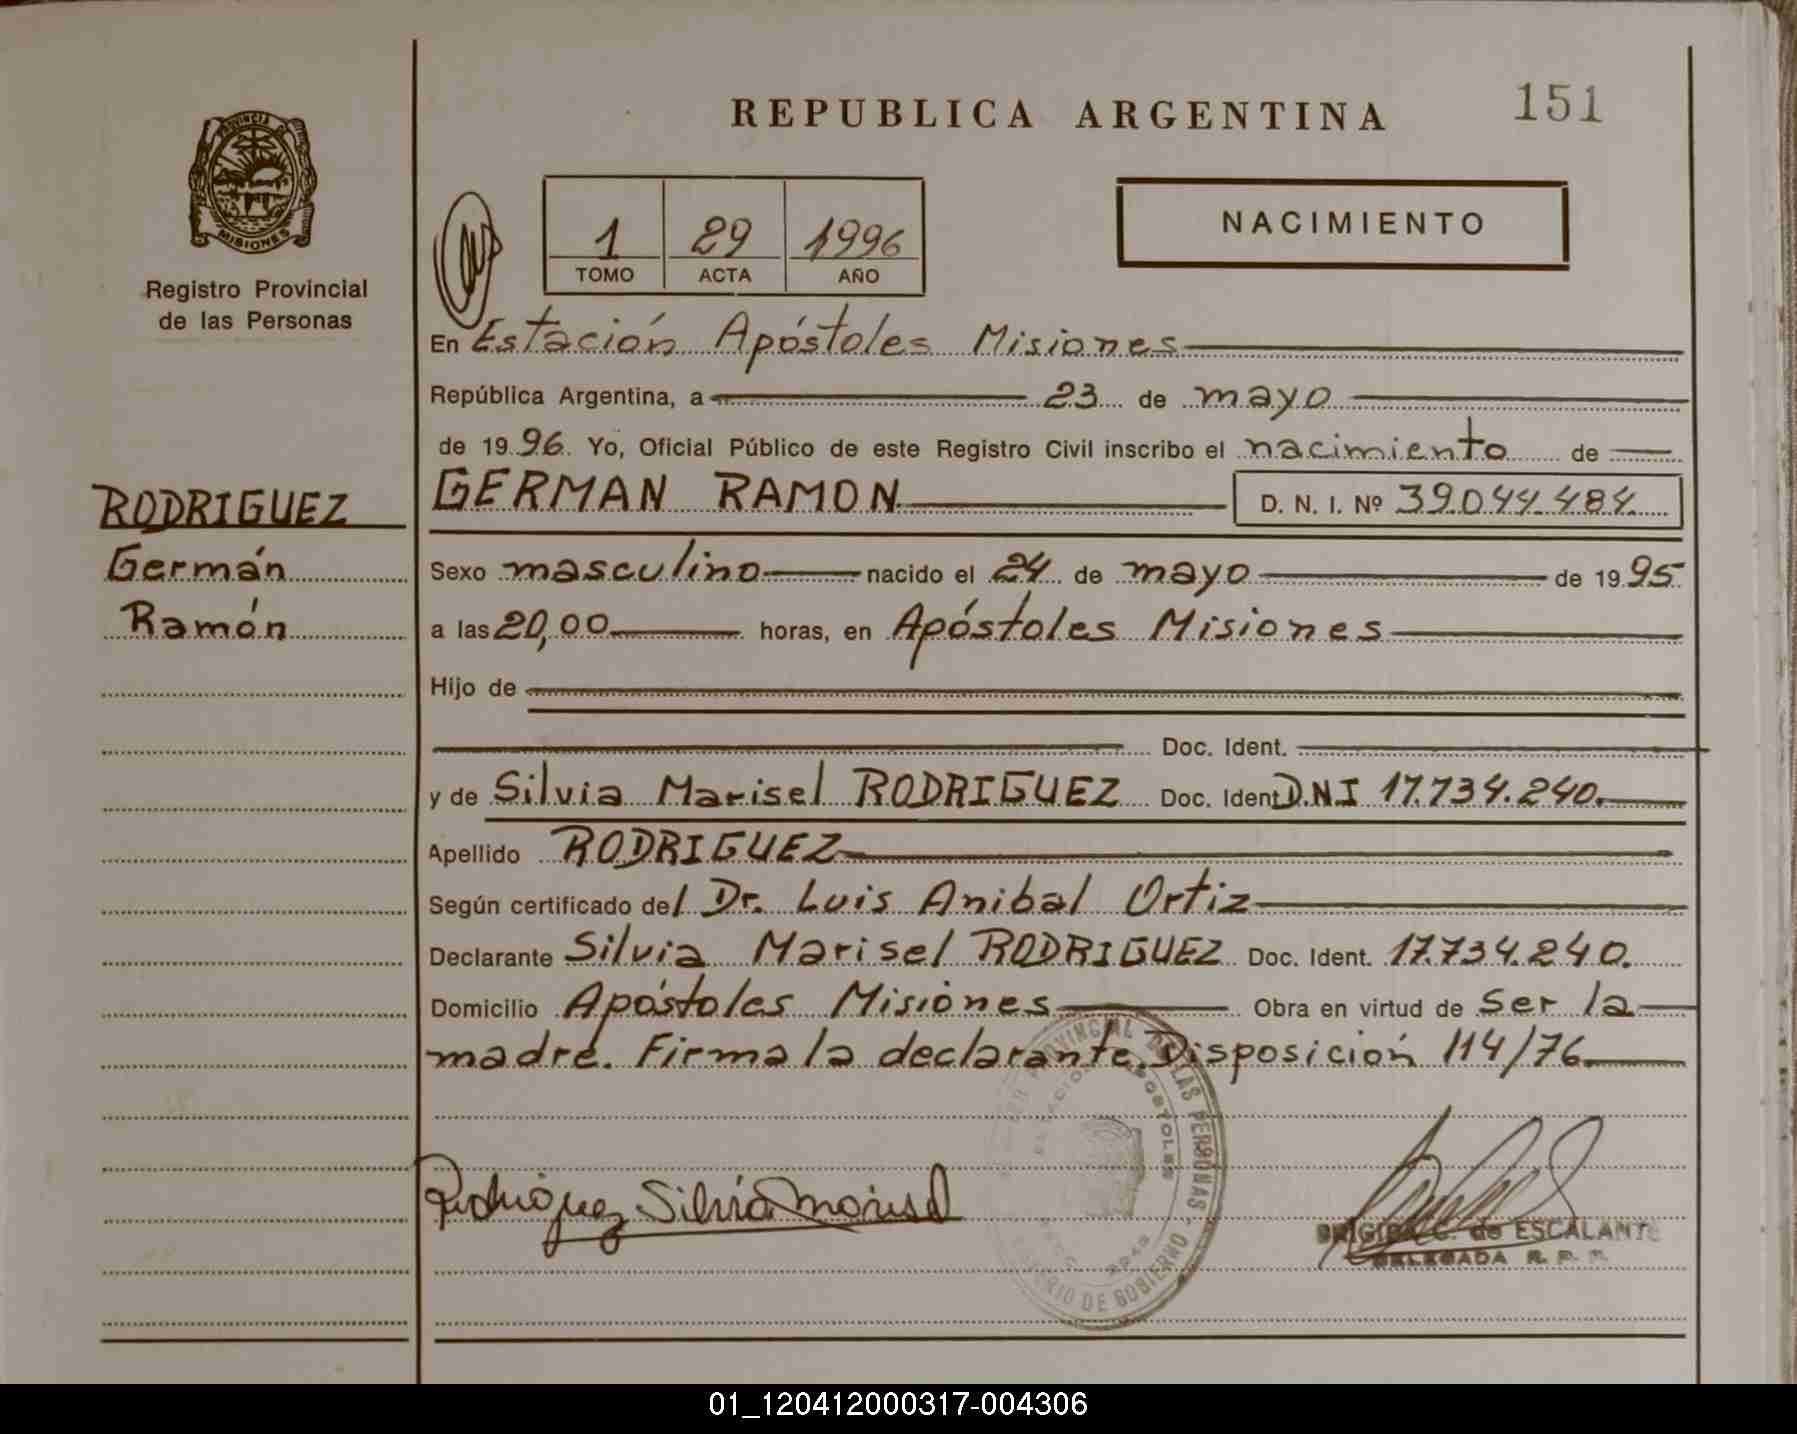 REPUBLICA ARGENTINA
151
PROVINCIA DE
MISIONES
Registro Provincial
de las Personas
1 29 1996
TOMO ACTA AÑO
NACIMIENTO
En Estación Apóstoles Misiones
República Argentina, a 23 de mayo
de 1996. Yo, Oficial Público de este Registro Civil inscribo el nacimiento de
GERMAN RAMON D. N. I. Nº 39.044.484.
RODRIGUEZ
Germán
Ramón
Sexo masculino nacido el 24 de mayo de 1995
a las 20,00 horas, en Apóstoles Misiones
Hijo de
Doc. Ident.
y de Silvia Marisel RODRIGUEZ Doc. Ident D.N.I 17.734.240.
Apellido RODRIGUEZ
Según certificado del Dr. Luis Anibal Ortiz
Declarante Silvia Marisel RODRIGUEZ Doc. Ident. 17.734.240.
Domicilio Apóstoles Misiones Obra en virtud de Ser la
madre. Firma la declarante. Disposición 114/76.
PROVINCIAL DE LAS PERSONAS
APOSTOLES
DE GOBIERNO
Rodriguez Silvia Marisel
BRIGIDA C. de ESCALANTE
DELEGADA R. P. P.
01_120412000317-004306